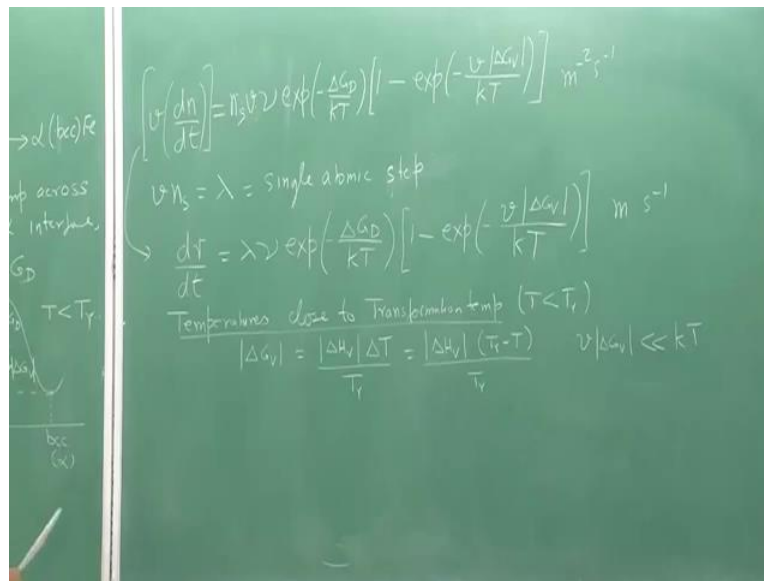 → α (bcc) Fe
mp across
interface,
G_D
T < T_γ
|ΔG|
bcc
(α)
[v(dn/dt)] = n_s v ν exp(-ΔG_D/kT) [1 - exp(-v|ΔG_v|/kT)] m^-2 s^-1
v n_s = λ = single atomic step
dr/dt = λν exp(-ΔG_D/kT) [1 - exp(-v|ΔG_v|/kT)] m s^-1
Temperatures close to Transformation temp (T < T_γ)
|ΔG_v| = |ΔH_v| ΔT/T_γ = |ΔH_v| (T_γ - T)/T_γ v|ΔG_v| ≪ kT